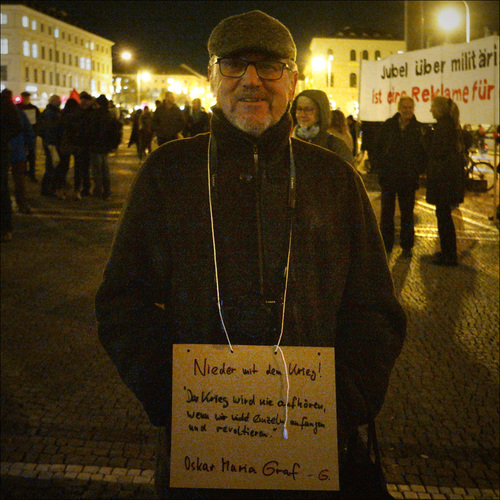 Jubel über militäri
ist eine Reklame für
Nieder mit dem Krieg!
"Der Krieg wird nie aufhören,
wenn wir nicht einzeln anfangen
und revoltieren."
Oskar Maria Graf - G.